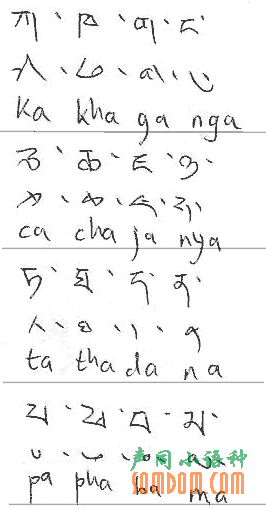 ཀ་ཁ་ག་ང་
ཀ་ཁ་ག་ང་
ka kha ga nga
ཅ་ཆ་ཇ་ཉ་
ཅ་ཆ་ཇ་ཉ་
ca cha ja nya
ཏ་ཐ་ད་ན་
ཏ་ཐ་ད་ན་
ta tha da na
པ་ཕ་བ་མ་
པ་ཕ་བ་མ་
pa pha ba ma
声同小语种
somdom.com